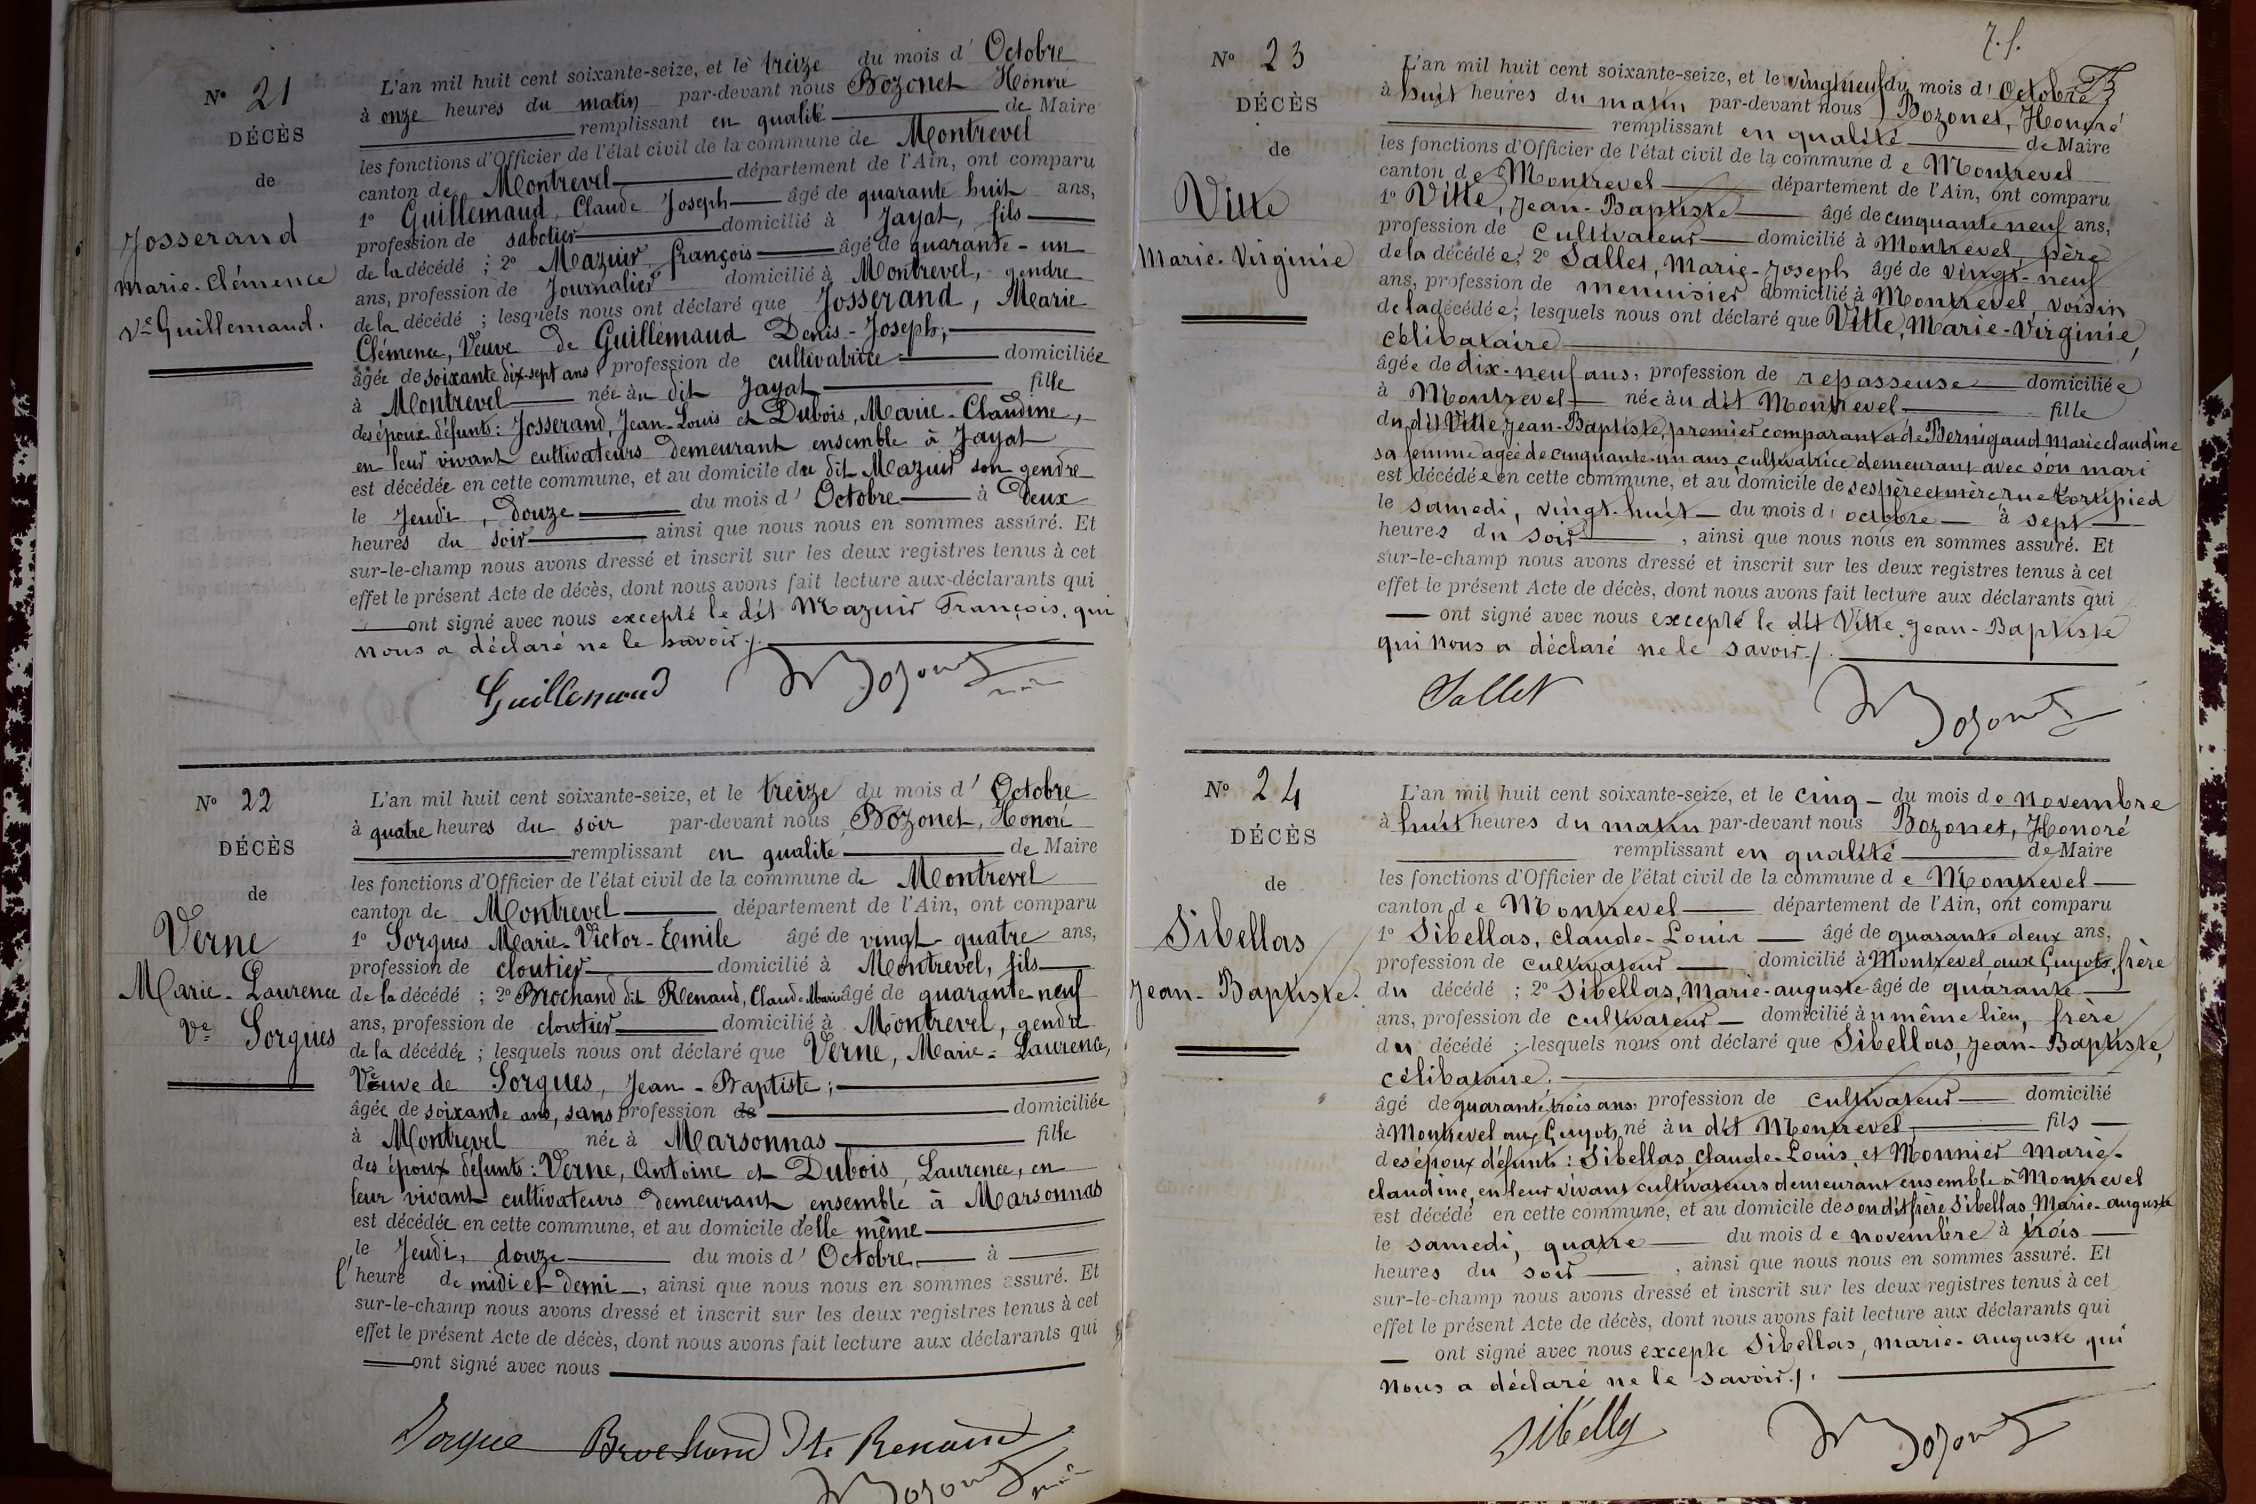 N° 21
DÉCÈS
de
Josserand
Marie-Clémence
Vve Guillemaud.
L'an mil huit cent soixante-seize, et le treize du mois d' Octobre
à onze heures du matin par-devant nous Bozonet Honoré
remplissant en qualité de Maire
les fonctions d'Officier de l'état civil de la commune de Montrevel
canton de Montrevel département de l'Ain, ont comparu
1° Guillemaud, Claude Joseph âgé de quarante huit ans,
profession de sabotier domicilié à Jayat, fils
de la décédé ; 2° Mazuir, françois âgé de quarante-un
ans, profession de Journalier domicilié à Montrevel, gendre
de la décédé ; lesquels nous ont déclaré que Josserand, Marie
Clémence, Veuve de Guillemaud Denis-Joseph,
âgée de soixante dix-sept ans profession de cultivatrice domiciliée
à Montrevel née au dit Jayat fille
des époux défunts: Josserand, Jean-Louis et Dubois, Marie-Claudine,
en leur vivant cultivateurs demeurant ensemble à Jayat
est décédée en cette commune, et au domicile du dit Mazuir son gendre
le Jeudi, douze du mois d' Octobre à Deux
heures du soir ainsi que nous nous en sommes assuré. Et
sur-le-champ nous avons dressé et inscrit sur les deux registres tenus à cet
effet le présent Acte de décès, dont nous avons fait lecture aux déclarants qui
ont signé avec nous excepté le dit Mazuir François, qui
nous a déclaré ne le savoir./.
Guillemaud Bozonet
N° 22
DÉCÈS
de
Verne
Marie-Laurence
Ve Sorgues
L'an mil huit cent soixante-seize, et le treize du mois d' Octobre
à quatre heures du soir par-devant nous Bozonet, Honoré
remplissant en qualité de Maire
les fonctions d'Officier de l'état civil de la commune de Montrevel
canton de Montrevel département de l'Ain, ont comparu
1° Sorgues Marie-Victor-Emile âgé de vingt-quatre ans,
profession de cloutier domicilié à Montrevel, fils
de la décédé ; 2° Brochand dit Renaud, Claude-Marie âgé de quarante-neuf
ans, profession de cloutier domicilié à Montrevel, gendre
de la décédée ; lesquels nous ont déclaré que Verne, Marie-Laurence,
Veuve de Sorgues, Jean-Baptiste;
âgée de soixante ans, sans profession de domiciliée
à Montrevel née à Marsonnas fille
des époux défunts: Verne, Antoine et Dubois, Laurence, en
leur vivant cultivateurs demeurant ensemble à Marsonnas
est décédée en cette commune, et au domicile d'elle même
le Jeudi, douze du mois d' Octobre à
l' heure de midi et demi, ainsi que nous nous en sommes assuré. Et
sur-le-champ nous avons dressé et inscrit sur les deux registres tenus à cet
effet le présent Acte de décès, dont nous avons fait lecture aux déclarants qui
ont signé avec nous
Sorgue Brochand dit Renaud
Bozonet
7. f.
N° 23
DÉCÈS
de
Vitte
Marie-Virginie
L'an mil huit cent soixante-seize, et le vingt neuf du mois d' Octobre
à huit heures du matin par-devant nous Bozonet, Honoré
remplissant en qualité de Maire
les fonctions d'Officier de l'état civil de la commune de Montrevel
canton de Montrevel département de l'Ain, ont comparu
1° Vitte, Jean-Baptiste âgé de cinquante neuf ans,
profession de cultivateur domicilié à Montrevel, père
de la décédée; 2° Sallet, Marie-Joseph âgé de vingt-neuf
ans, profession de menuisier domicilié à Montrevel, voisin
de la décédée; lesquels nous ont déclaré que Vitte, Marie-Virginie,
célibataire
âgée de dix-neuf ans, profession de repasseuse domiciliée
à Montrevel née au dit Montrevel fille
du dit Vitte Jean-Baptiste, premier comparant et de Bernigaud Marie claudine
sa femme agée de cinquante-un ans, cultivatrice demeurant avec son mari
est décédée en cette commune, et au domicile de ses père et mère, rue Tortipied
le samedi, vingt-huit du mois d' octobre à sept
heures du soir, ainsi que nous nous en sommes assuré. Et
sur-le-champ nous avons dressé et inscrit sur les deux registres tenus à cet
effet le présent Acte de décès, dont nous avons fait lecture aux déclarants qui
ont signé avec nous excepté le dit Vitte, Jean-Baptiste
qui nous a déclaré ne le savoir./.
Sallet Bozonet
N° 24
DÉCÈS
de
Sibellas
Jean-Baptiste.
L'an mil huit cent soixante-seize, et le cinq du mois de novembre
à huit heures du matin par-devant nous Bozonet, Honoré
remplissant en qualité de Maire
les fonctions d'Officier de l'état civil de la commune de Montrevel
canton de Montrevel département de l'Ain, ont comparu
1° Sibellas, claude-Louis âgé de quarante deux ans,
profession de cultivateur domicilié à Montrevel aux Guyots, frère
du décédé ; 2° Sibellas, Marie-auguste âgé de quarante
ans, profession de cultivateur domicilié au même lieu, frère
du décédé ; lesquels nous ont déclaré que Sibellas, Jean-Baptiste,
célibataire.
âgé de quarante trois ans, profession de cultivateur domicilié
à Montrevel aux Guyots, né au dit Montrevel fils
des époux défunts: Sibellas, claude-Louis, et Monnier Marie-
claudine, en leur vivant cultivateurs demeurant ensemble à Montrevel
est décédé en cette commune, et au domicile de son dit frère Sibellas Marie-auguste
le samedi, quatre du mois de novembre à trois
heures du soir, ainsi que nous nous en sommes assuré. Et
sur-le-champ nous avons dressé et inscrit sur les deux registres tenus à cet
effet le présent Acte de décès, dont nous avons fait lecture aux déclarants qui
ont signé avec nous excepte Sibellas, Marie-auguste qui
nous a déclaré ne le savoir./.
Sibellas Bozonet